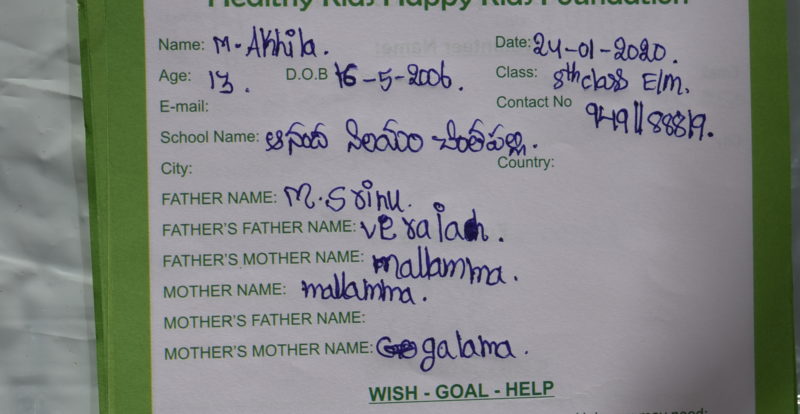 Healthy Kids Happy Kids Foundation
Name: M. Akhila. Date: 24-01-2020.
Age: 13. D.O.B 16-5-2006. Class: 8th class E/m.
E-mail: Contact No 9491188819.
School Name: ఆనంద నిలయం చింతపల్లి.
City: Country:
FATHER NAME: M. Srinu.
FATHER'S FATHER NAME: veraiah.
FATHER'S MOTHER NAME: mallamma.
MOTHER NAME: mallamma.
MOTHER'S FATHER NAME:
MOTHER'S MOTHER NAME: galama.
WISH - GOAL - HELP
may need: